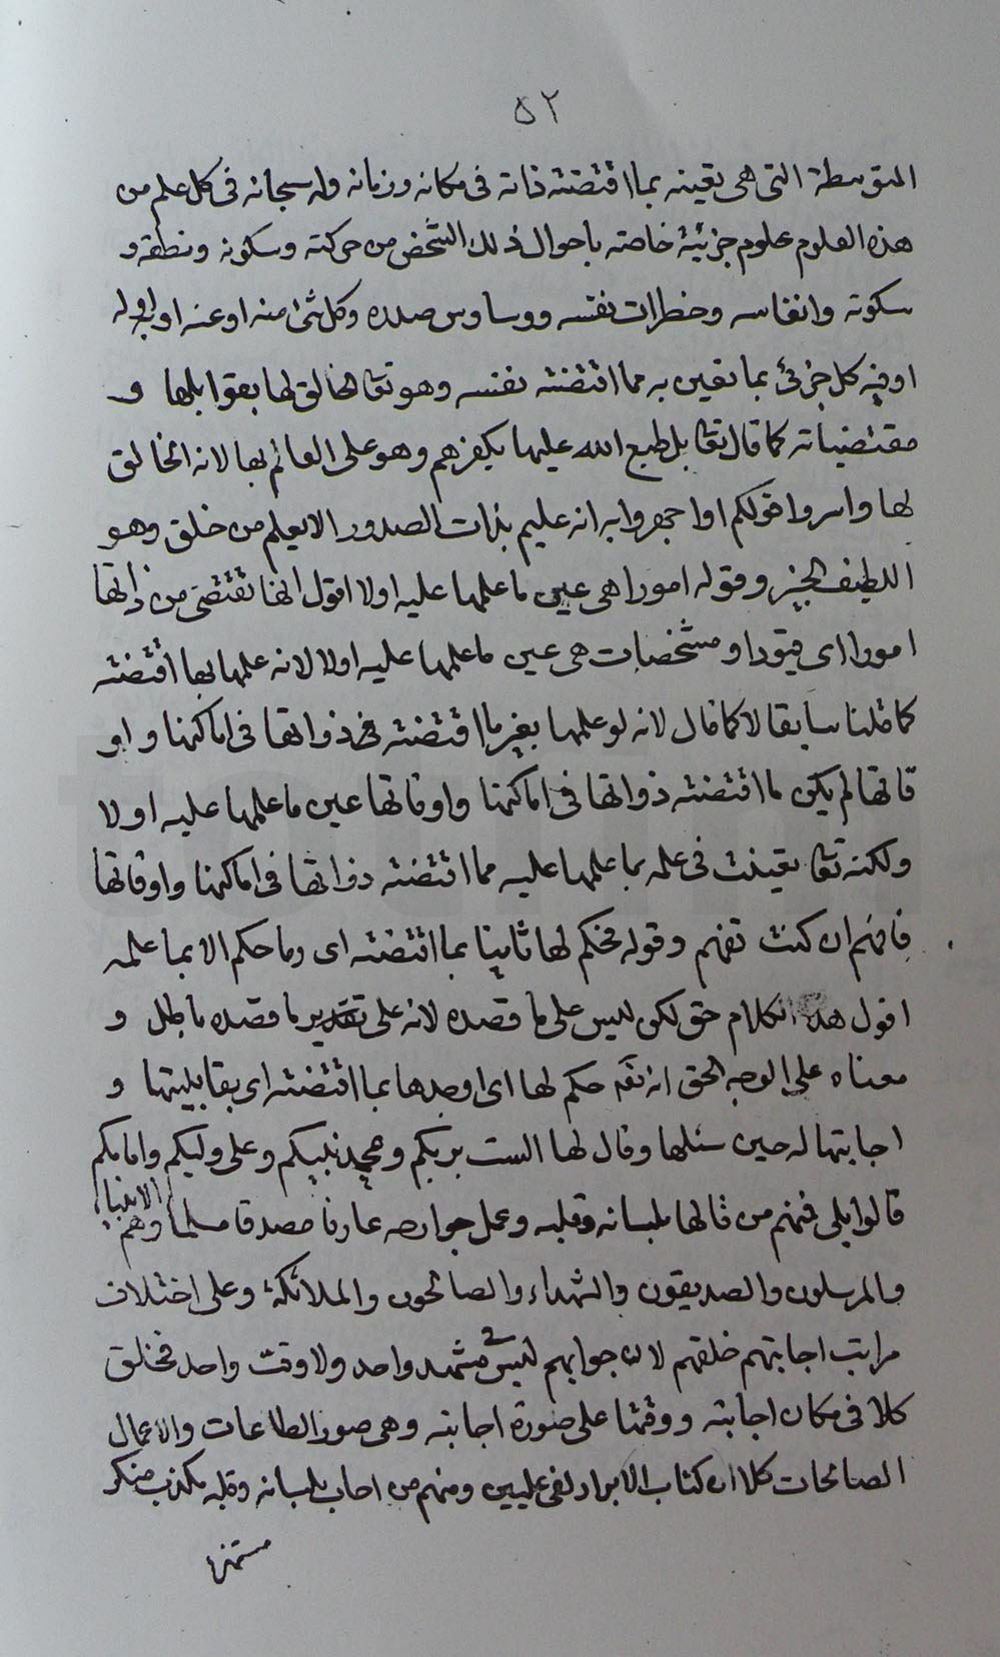 ٥٢
المتوسطة التى هى تعينه بما اقتضته ذاته فى مكانه وزمانه وله سبحانه فى كل علم من
هذه العلوم علوم جزئية خاصة باحوال ذلك الشخص من حركته وسكونه ونطقه و
سكوته وانفاسه وخطرات نفسه ووساوس صدره وكل شئ منه او عنه او به او له
او فيه كل جزئ بما تعين به مما اقتضته نفسه وهو تعا الخالق لها بقوابلها و
مقتضياته كما قال تعا بل طبع الله عليها بكفرهم وهو على العالم بها لانه الخالق
لها واسروا قولكم او اجهروا به انه عليم بذات الصدور الا يعلم من خلق وهو
اللطيف الخبير وقوله امورا هى عين ما علمها عليه اولا اقول انها تقتضى من ذاتها
امورا اى قيودا ومشخصات هى عين ما علمها عليه اولا لانه علمها بما اقتضته
كما قلنا سابقا لا كما قال لانه لو علمها بغير ما اقتضته فى ذواتها فى اماكنها واو
قاتها لم يكن ما اقتضته ذواتها فى اماكنها واوقاتها عين ما علمها عليه اولا
ولكنه تعا تعينت فى علمه بما علمها عليه مما اقتضته ذواتها فى اماكنها واوقاتها
فافهم ان كنت تفهم وقوله فحكم لها ثانيا بما اقتضته اى وما حكم الا بما علمه
اقول هذا الكلام حق لكن ليس على ما قصده لانه على تقدير ما قصده باطل و
معناه على الوجه الحق انه تعا حكم لها اى اوجدها بما اقتضته اى بقابليتها و
اجابتها له حين سئلها وقال لها الست بربكم ومحمد نبيكم وعلى وليكم وامامكم
قالوا بلى فمنهم من قالها بلسانه وقلبه وعمل جوارحه عارفا مصدقا مسلما وهم الانبياء
والمرسلون والصديقون والشهداء والصالحون والملائكة وعلى اختلاف
مراتب اجابتهم خلقهم لان جوابهم ليس فى مشهد واحد ولا وقت واحد فخلق
كلا فى مكان اجابته ووقتها على صورة اجابته وهى صور الطاعات والاعمال
الصالحات كلا ان كتاب الابرار لفى عليين ومنهم من اجاب بلسانه وقلبه مكذب منكر
مستهزء